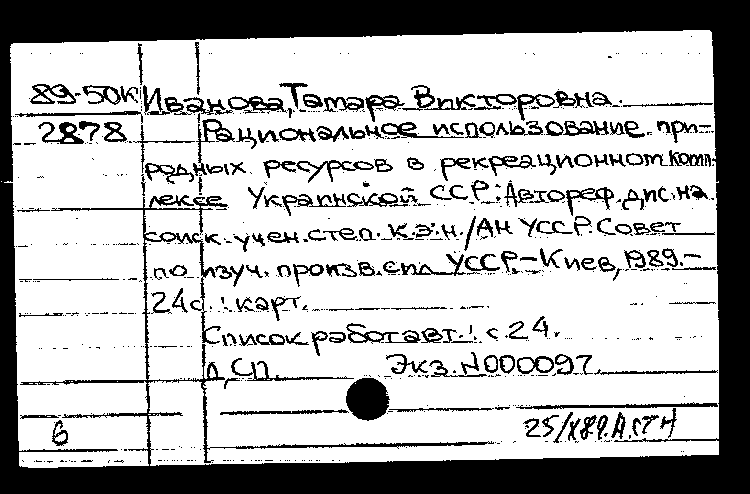 89-50к Иванова, Тамара Викторовна.
2878 Рациональное использование при-
родных ресурсов в рекреационном комп-
лексе Украинской ССР: Автореф. дис. на
соиск. учен. степ. к.э.н. / АН УССР. Совет
по изуч. произв. сил УССР. - Киев, 1989. -
24с. : карт.
Список работ авт.: с. 24.
Л, СП. Экз. N000097.
6 25/X89.